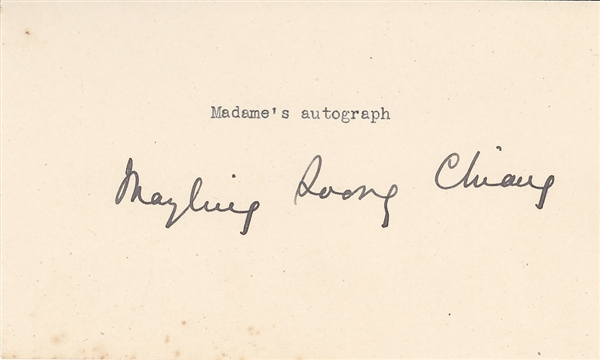 Madame's autograph
Mayling Soong Chiang